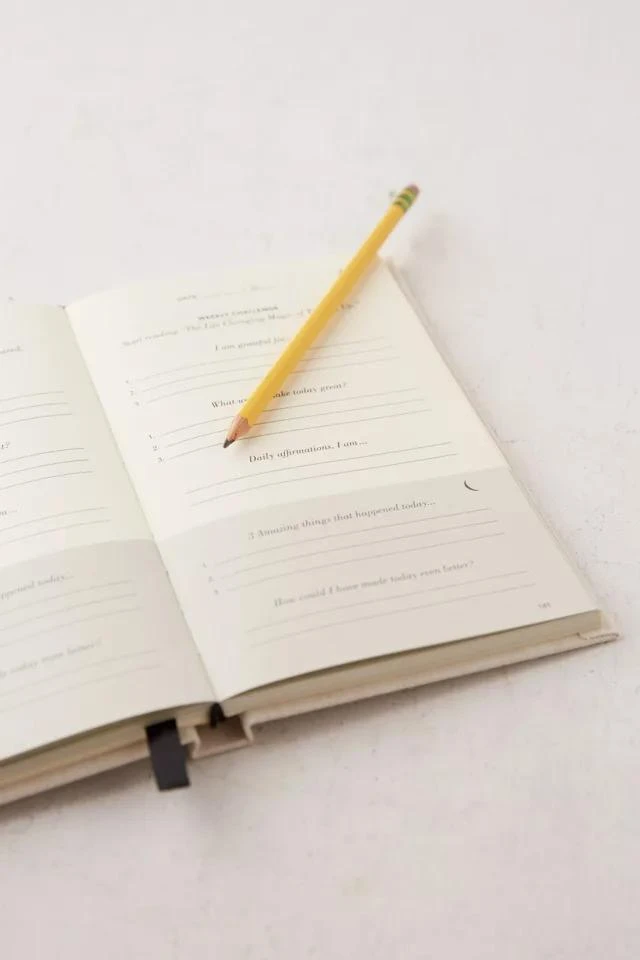 ared,
t?
...
ppened today...
today even better?
DATE
WEEKLY CHALLENGE
Start reading "The Life Changing Magic of
I am grateful for
1.
2.
3.
What ake today great?
1.
2.
3.
Daily affirmations. I am...
3 Amazing things that happened today...
1.
2.
3.
How could I have made today even better?